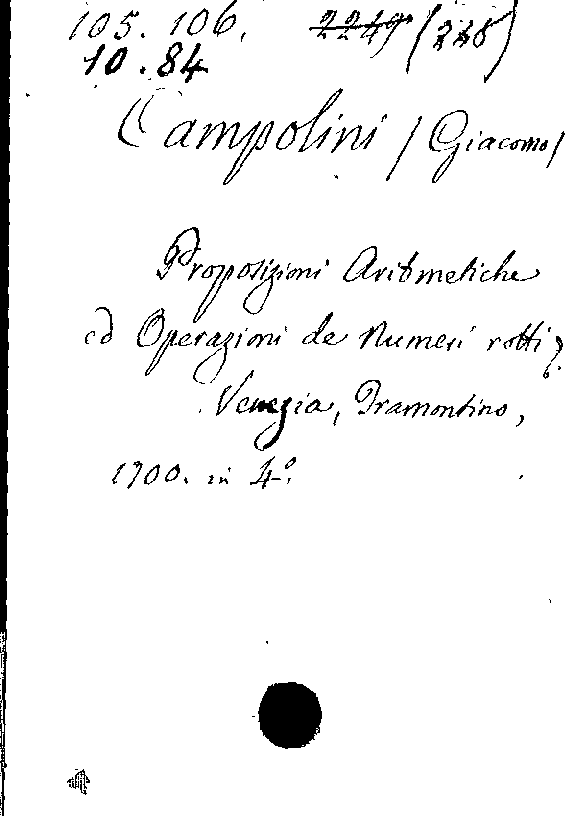 105. 106. 2249 (228)
10.84
Campolini (Giacomo)
Proposizioni Aritmetiche
ed Operazioni de Numeri rotti &c.
Venezia, Tramontino,
1700. in 4º.